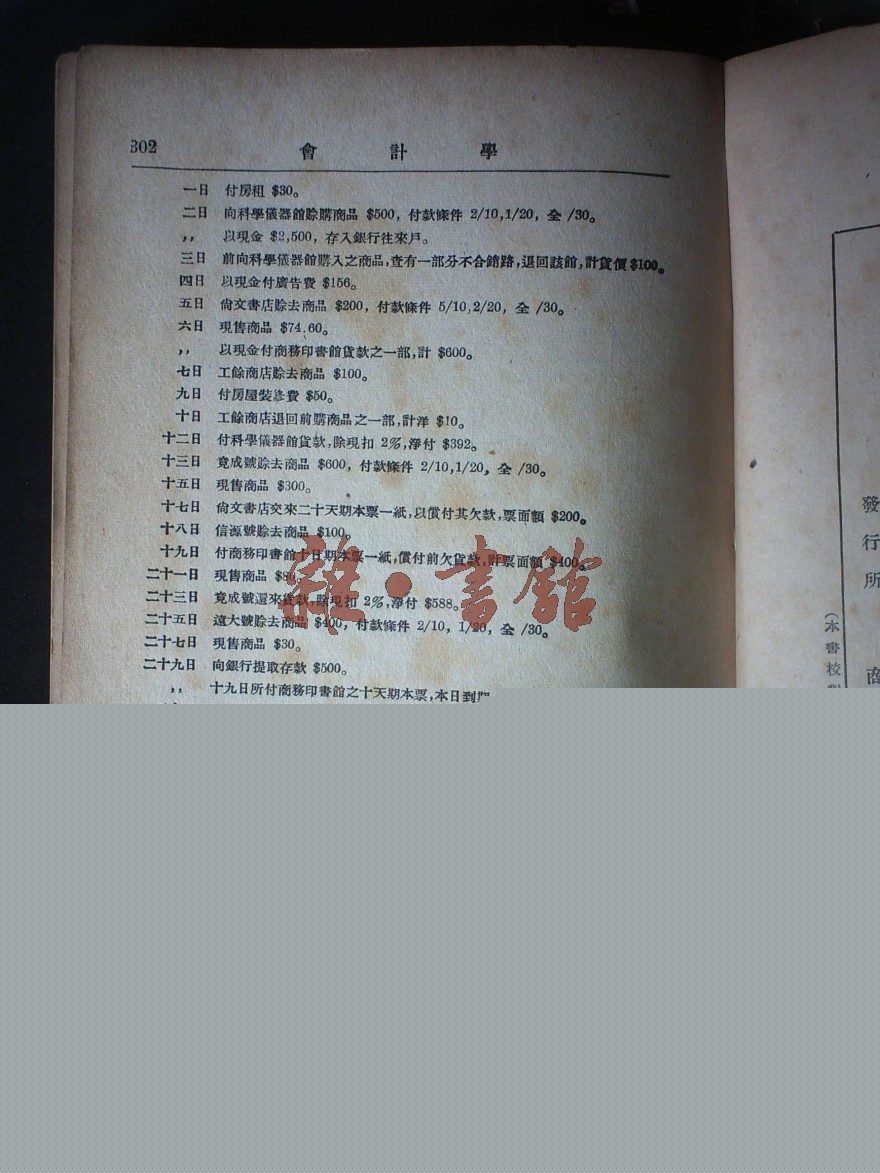 302
會計學
一日 付房租 $30。
二日 向科學儀器館賒購商品 $500, 付款條件 2/10,1/20, 全 /30。
,, 以現金 $2,500, 存入銀行往來戶。
三日 前向科學儀器館購入之商品,查有一部分不合銷路,退回該館,計貨價 $100。
四日 以現金付廣告費 $156。
五日 尙文書店賒去商品 $200, 付款條件 5/10,2/20, 全 /30。
六日 現售商品 $74.60。
,, 以現金付商務印書館貨款之一部,計 $600。
七日 工餘商店賒去商品 $100。
九日 付房屋裝修費 $50。
十日 工餘商店退回前購商品之一部,計洋 $10。
十二日 付科學儀器館貨款,除現扣 2%,淨付 $392。
十三日 竟成號賒去商品 $600, 付款條件 2/10,1/20, 全 /30。
十五日 現售商品 $300。
十七日 尙文書店交來二十天期本票一紙,以償付其欠款,票面額 $200。
十八日 信源號賒去商品 $100
十九日 付商務印書館十日期本票一紙,償付前欠貨款,計票面額 $400。
二十一日 現售商品
二十三日 竟成號還來貨款,除現扣 2%,淨付 $588。
二十五日 遠大號賒去商品 $400, 付款條件 2/10, 1/20, 全 /30。
二十七日 現售商品 $30。
二十九日 向銀行提取存款 $500。
,, 十九日所付商務印書館之十天期本票,本日到
雜·書館
發
行
所
商
(本書校